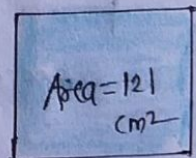 Area = 121
cm2